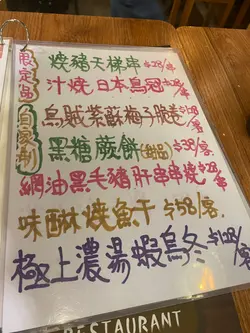 限定品
自家制
燒豬天梯串 $28/串
汁燒日本烏冠 $28/串
烏賊紫蘇梅子脆卷 $28/客
黑糖蕨餅(甜品) $38/客
網油黑毛豬肝串串燒 $58/客
味醂燒魚干 $58/客
極上濃湯蝦烏冬 $128/客
RESTAURANT